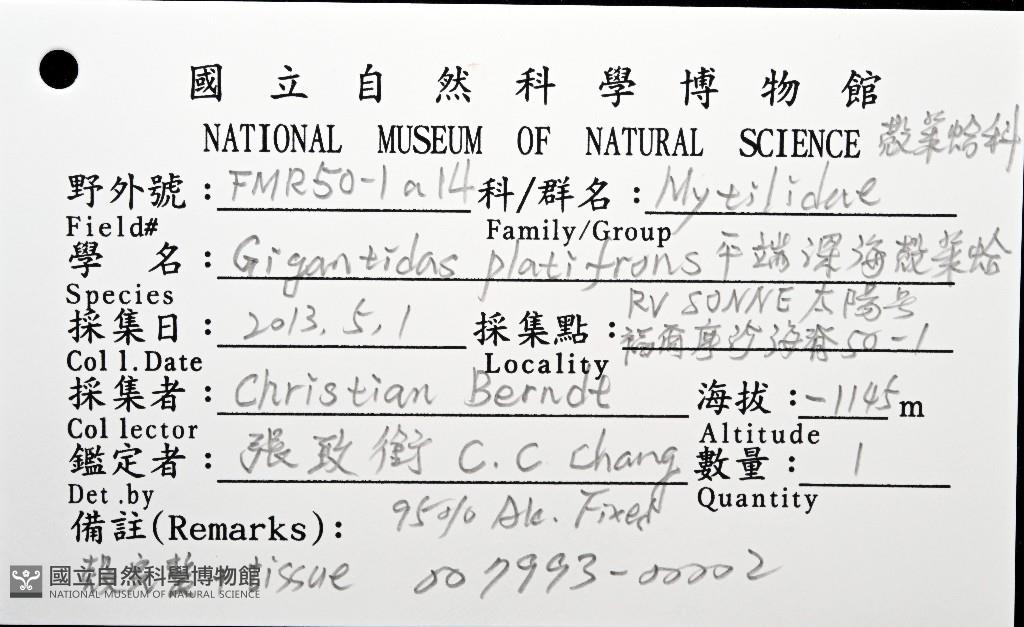 國立自然科學博物館
NATIONAL MUSEUM OF NATURAL SCIENCE 殼菜蛤科
野外號:FMR50-1 a 14 科/群名:Mytilidae
Field# Family/Group
學 名:Gigantidas platifrons 平端深海殼菜蛤
Species RV SONNE 太陽号
採集日:2013.5.1 採集點:福爾摩沙海脊50-1
Coll.Date Locality
採集者:Christian Berndt 海拔:-1145 m
Collector Altitude
鑑定者:張致銜 C.C Chang 數量:1
Det.by Quantity
備註(Remarks): 95% Alc. Fixed
tissue 007993-00002
國立自然科學博物館
NATIONAL MUSEUM OF NATURAL SCIENCE